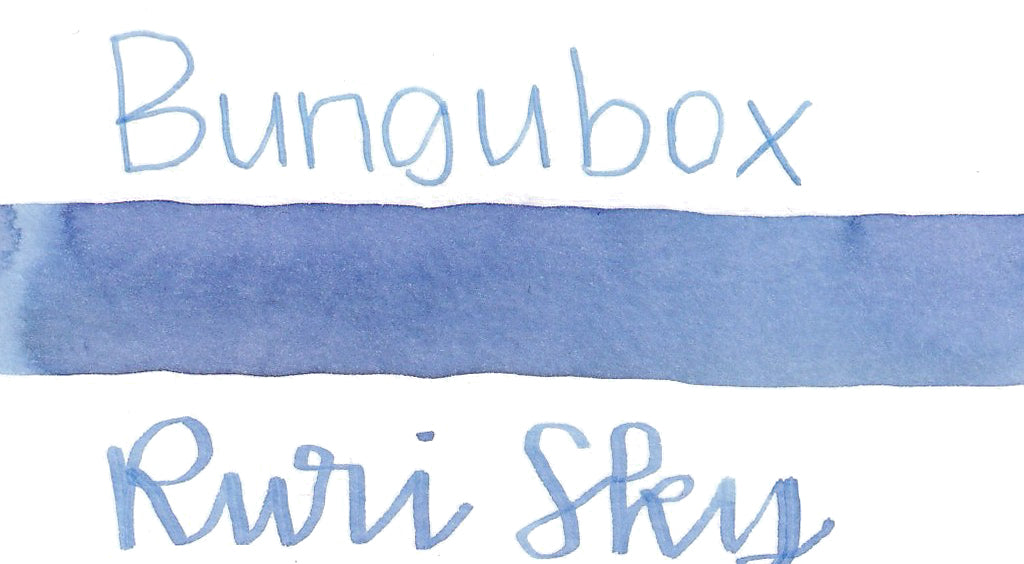 Bungubox
Ruri Sky